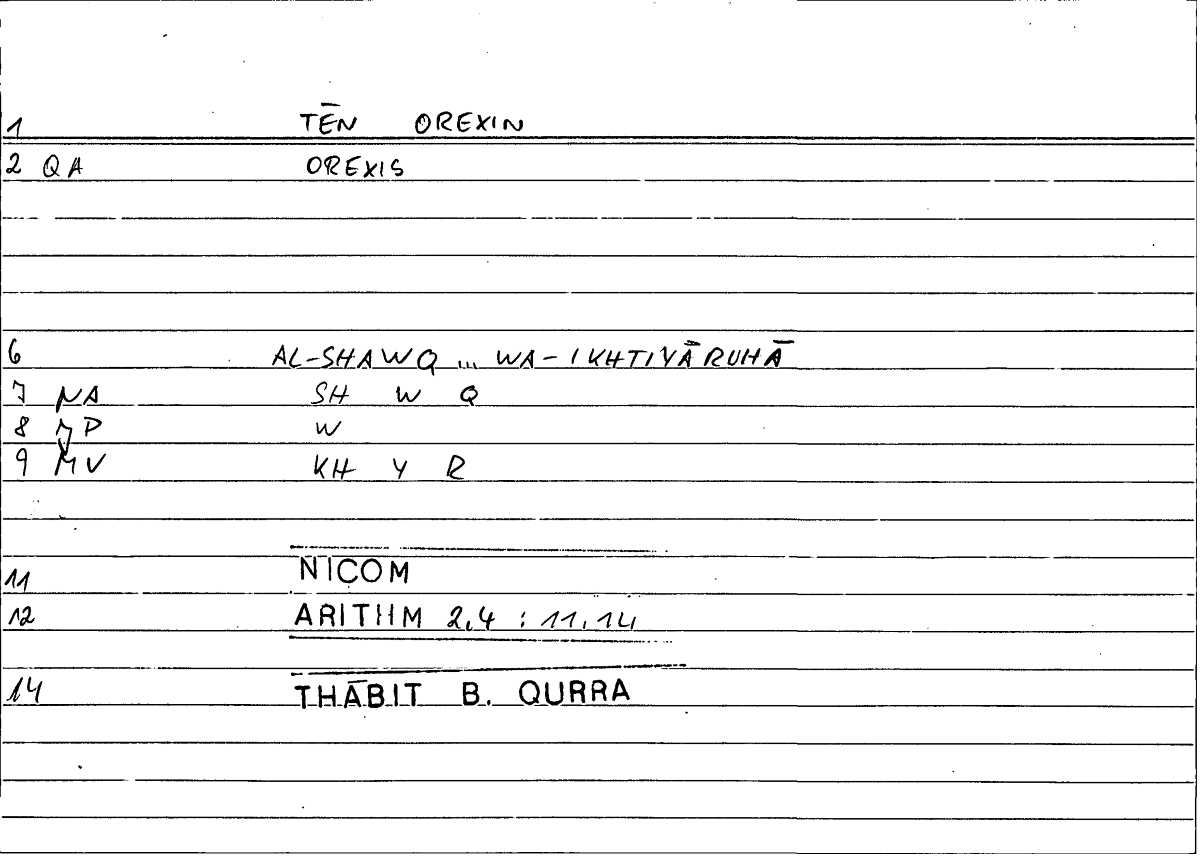 1 TĒN OREXIN
2 QA OREXIS
6 AL-SHAWQ ... WA-IKHTIYĀRUHĀ
7 NA SH W Q
8 JP W
9 MV KH Y R
11 NICOM
12 ARITHM 2,4 : 11,14
14 THĀBIT B. QURRA